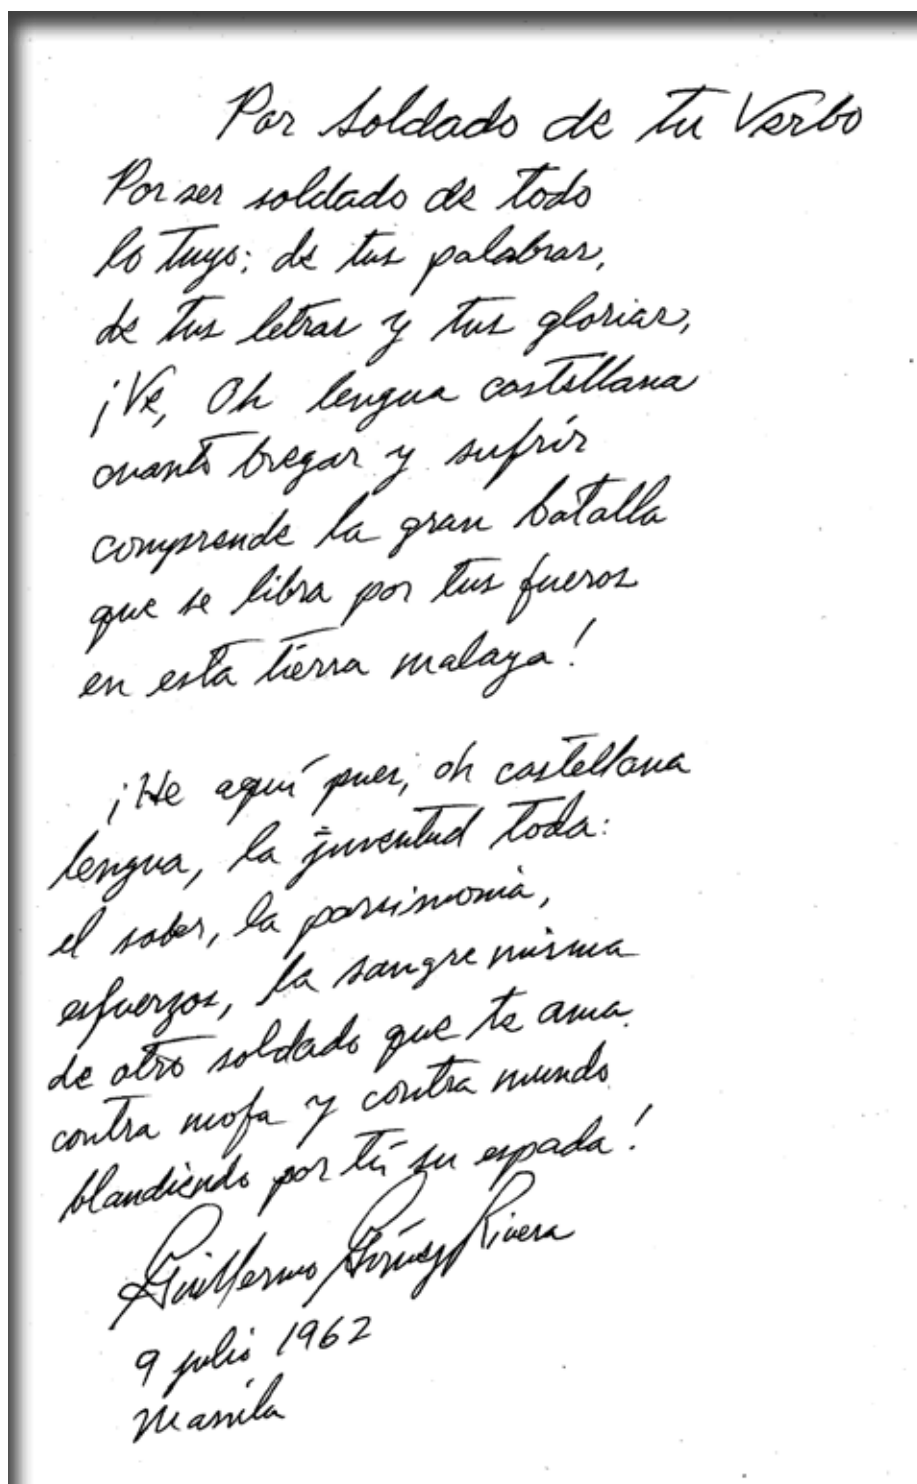 Por Soldado de tu Verbo
Por ser soldado de todo
lo tuyo: de tus palabras,
de tus letras y tus glorias,
¡Ve, Oh lengua castellana
cuanto bregar y sufrir
comprende la gran batalla
que se libra por tus fueros
en esta tierra malaya!
¡He aquí pues, oh castellana
lengua, la juventud toda:
el saber, la parsimonia,
esfuerzos, la sangre misma
de otro soldado que te ama
contra mofa y contra mundo
blandiendo por tí su espada!
Guillermo Gómez Rivera
9 julio 1962
Manila